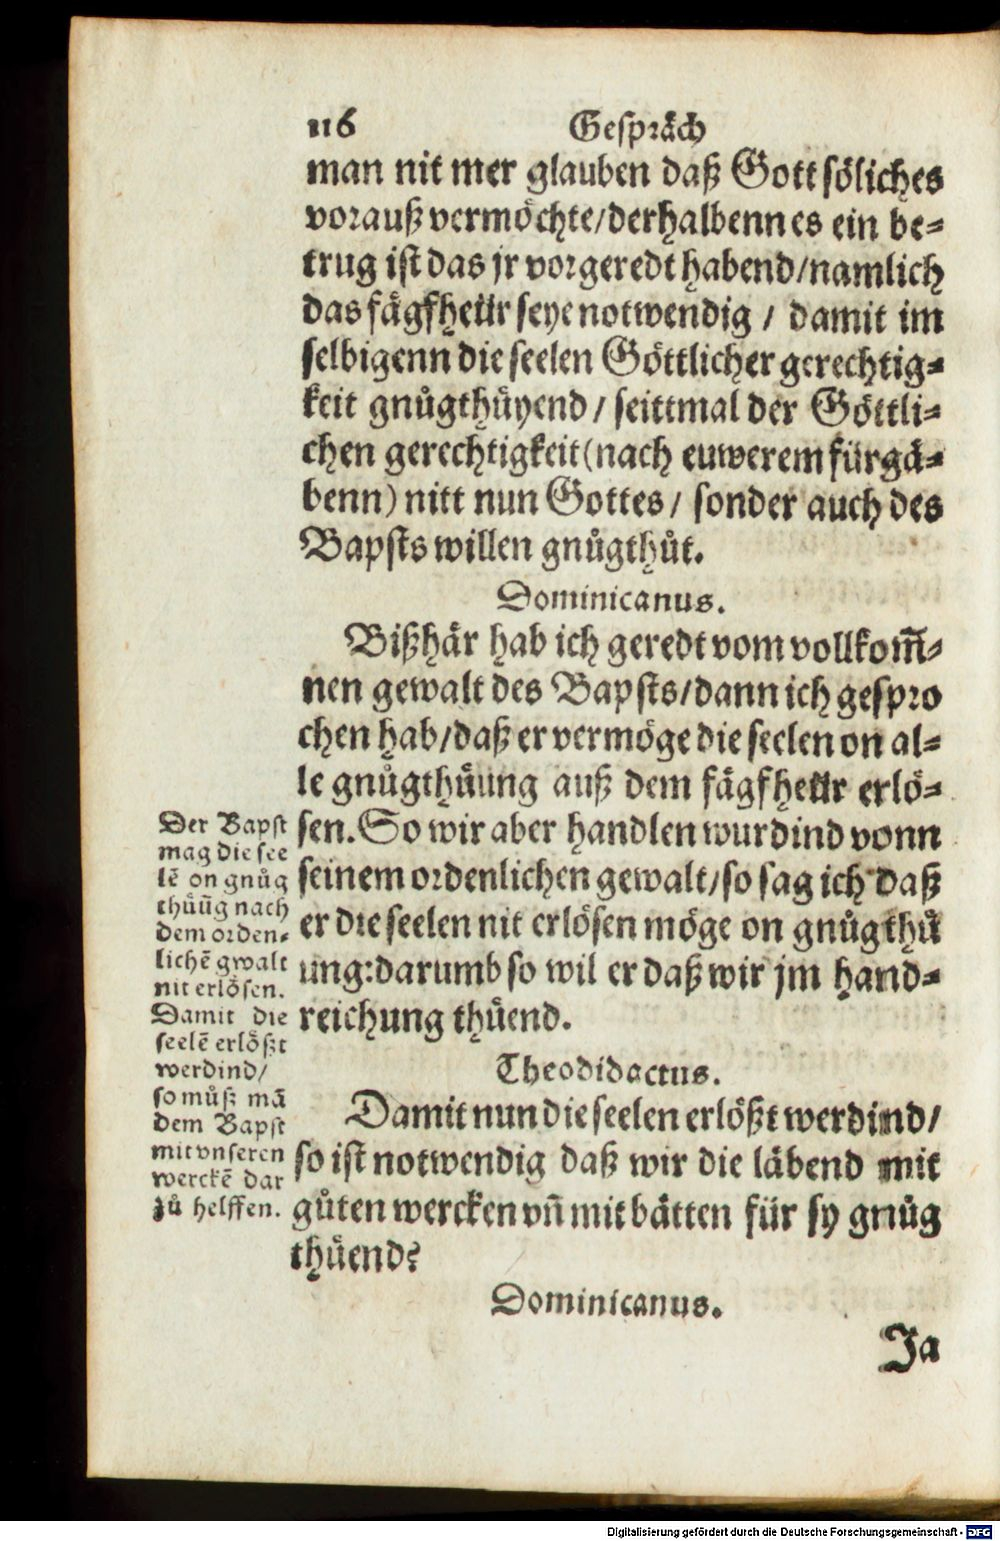 116 Gespräch
man nit mer glauben daß Gott söliches
vorauß vermöchte/derhalbenn es ein be-
trug ist das jr vorgeredt habend/namlich
das fägfheür seye notwendig / damit im
selbigenn die seelen Göttlicher gerechtig-
keit gnůgthüyend / seittmal der Göttli-
chen gerechtigkeit (nach euwerem fürgä-
benn) nitt nun Gottes / sonder auch des
Bapsts willen gnůgthůt.
Dominicanus.
Bißhär hab ich geredt vom vollkom̃-
nen gewalt des Bapsts/dann ich gespro
chen hab/daß er vermöge die seelen on al-
le gnůgthüung auß dem fägfheür erlö-
sen. So wir aber handlen wurdind vonn
seinem ordenlichen gewalt/so sag ich daß
er die seelen nit erlösen möge on gnůgthů
ung: darumb so wil er daß wir jm hand-
reichung thüend.
Der Bapst
mag die see
lē on gnůg
thüūg nach
dem orden-
lichē gwalt
nit erlösen.
Damit die
seelē erlößt
werdind/
so můß mā
dem Bapst
mit vnseren
werckē dar
zů helffen.
Theodidactus.
Damit nun die seelen erlößt werdind/
so ist notwendig daß wir die läbend mit
gůten wercken vñ mit bätten für sy gnůg
thüend?
Dominicanus.
Ja
Digitalisierung gefördert durch die Deutsche Forschungsgemeinschaft - DFG